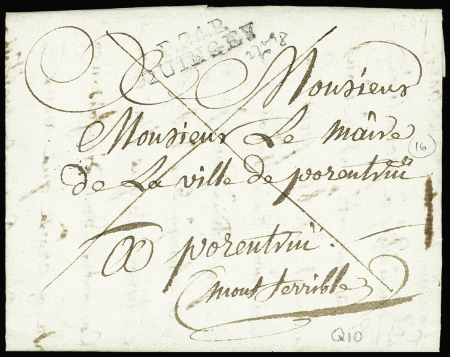 P.24.P.
QUINGEY
Monsieur
Monsieur Le maire
de La ville de porentrui
16
A porentrui.
mont terrible
Q10